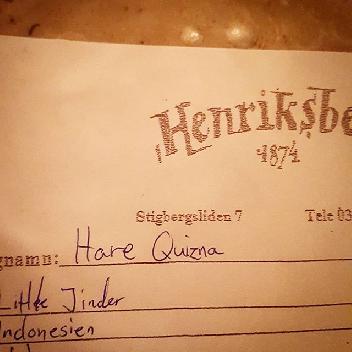 Henriksbe
1874
Stigbergsliden 7 Tele 03
gnamn: Hare Quizna
Little Jinder
Indonesien